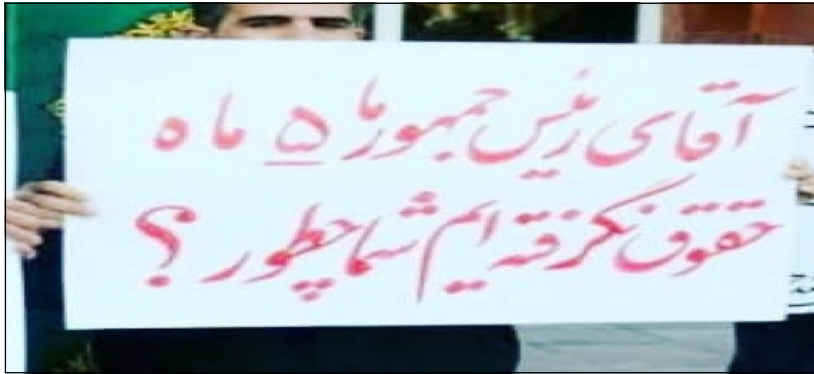 آقای رئیس جمهور ما ۵ ماه
حقوق نگرفته ایم شما چطور؟